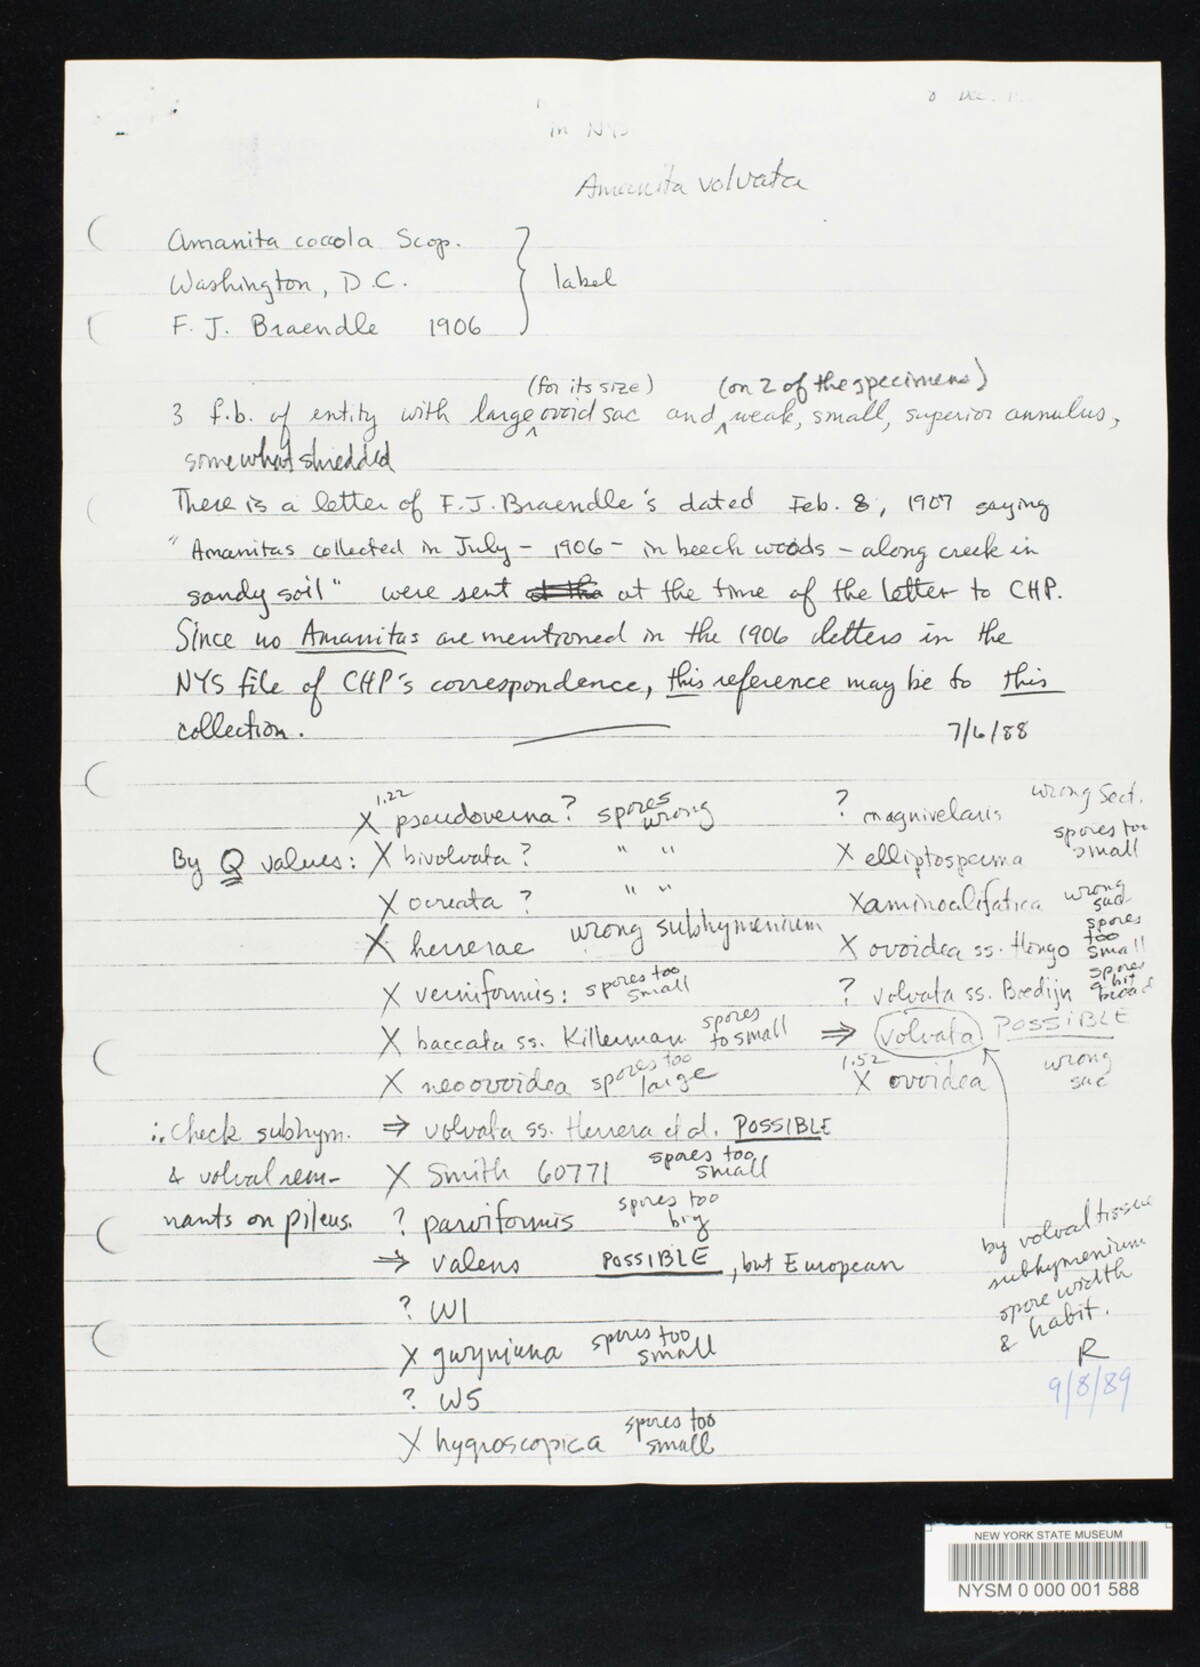 8 Dec.
in NYS
Amanita volvata
Amanita coccola Scop.
Washington, D.C.
F. J. Braendle 1906
label
(for its size) (on 2 of the specimens)
3 f.b. of entity with large ovoid sac and weak, small, superior annulus,
somewhat shredded
There is a letter of F.J. Braendle's dated Feb. 8, 1907 saying
"Amanitas collected in July – 1906 – in beech woods – along creek in
sandy soil" were sent at the at the time of the letter to CHP.
Since no Amanitas are mentioned in the 1906 letters in the
NYS file of CHP's correspondence, this reference may be to this
collection.
7/6/88
By Q values:
1.22
X pseudoverna? spores wrong
X bivolvata? " "
X ocreata? " "
X herrerae wrong subhymenium
X verniformis: spores too small
X baccata ss. Killerman spores to small
X neoovoidea spores too large
⇒ volvata ss. Herrera et al. POSSIBLE
X Smith 60771 spores too small
? parviformis spores too big
⇒ valens POSSIBLE, but European
? W1
X gwyniana spores too small
? W5
X hygroscopica spores too small
∴ Check subhym.
& volval rem-
nants on pileus.
? magnivelaris wrong Sect.
X elliptosperma spores too small
X aminoalifatica wrong sac
X ovoidea ss. Hongo spores too small
? volvata ss. Boedijn spores a bit broad
⇒ volvata POSSIBLE
1.52
X ovoidea wrong sac
by volval tissue
subhymenium
spore width
& habit.
R
9/8/89
NEW YORK STATE MUSEUM
NYSM 0 000 001 588